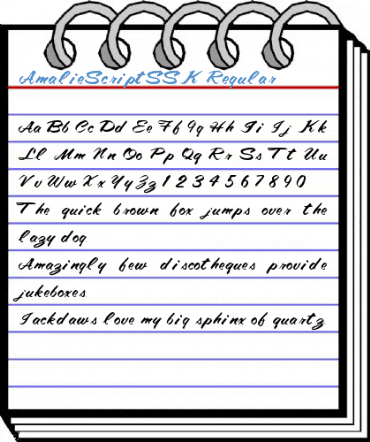 AmalieScriptSSK Regular
Aa Bb Cc Dd Ee Ff Gg Hh Ii Jj Kk
Ll Mm Nn Oo Pp Qq Rr Ss Tt Uu
Vv Ww Xx Yy Zz 1 2 3 4 5 6 7 8 9 0
The quick brown fox jumps over the
lazy dog
Amazingly few discotheques provide
jukeboxes
Jackdaws love my big sphinx of quartz